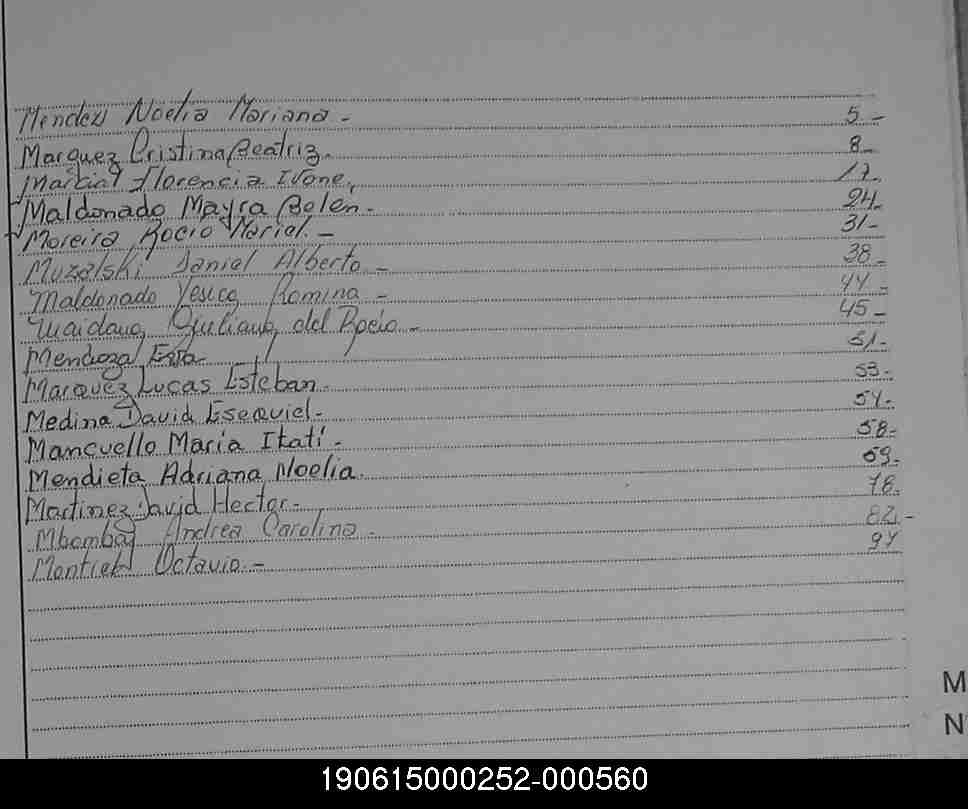 Mendez Noelia Mariana - 5 -
Marquez Cristina Beatriz. 8 -
Marcial Florencia Ivone, 17.
Maldonado Mayra Belen - 24.
Moreira Rocio Mariel. - 31 -
Muzalski Daniel Alberto - 38 -
Maldonado Yesica Romina - 44 -
Maidana, Giuliana, del Rocio - 45 -
Mendoza 51 -
Marquez Lucas Esteban - 53 -
Medina David Esequiel - 54 -
Mancuello Maria Itati - 58 -
Mendieta Adriana Noelia. 59.
Martinez David Hector - 78.
Andrea Carolina - 82 -
Montiel Octavio. - 94
M
N
190615000252-000560